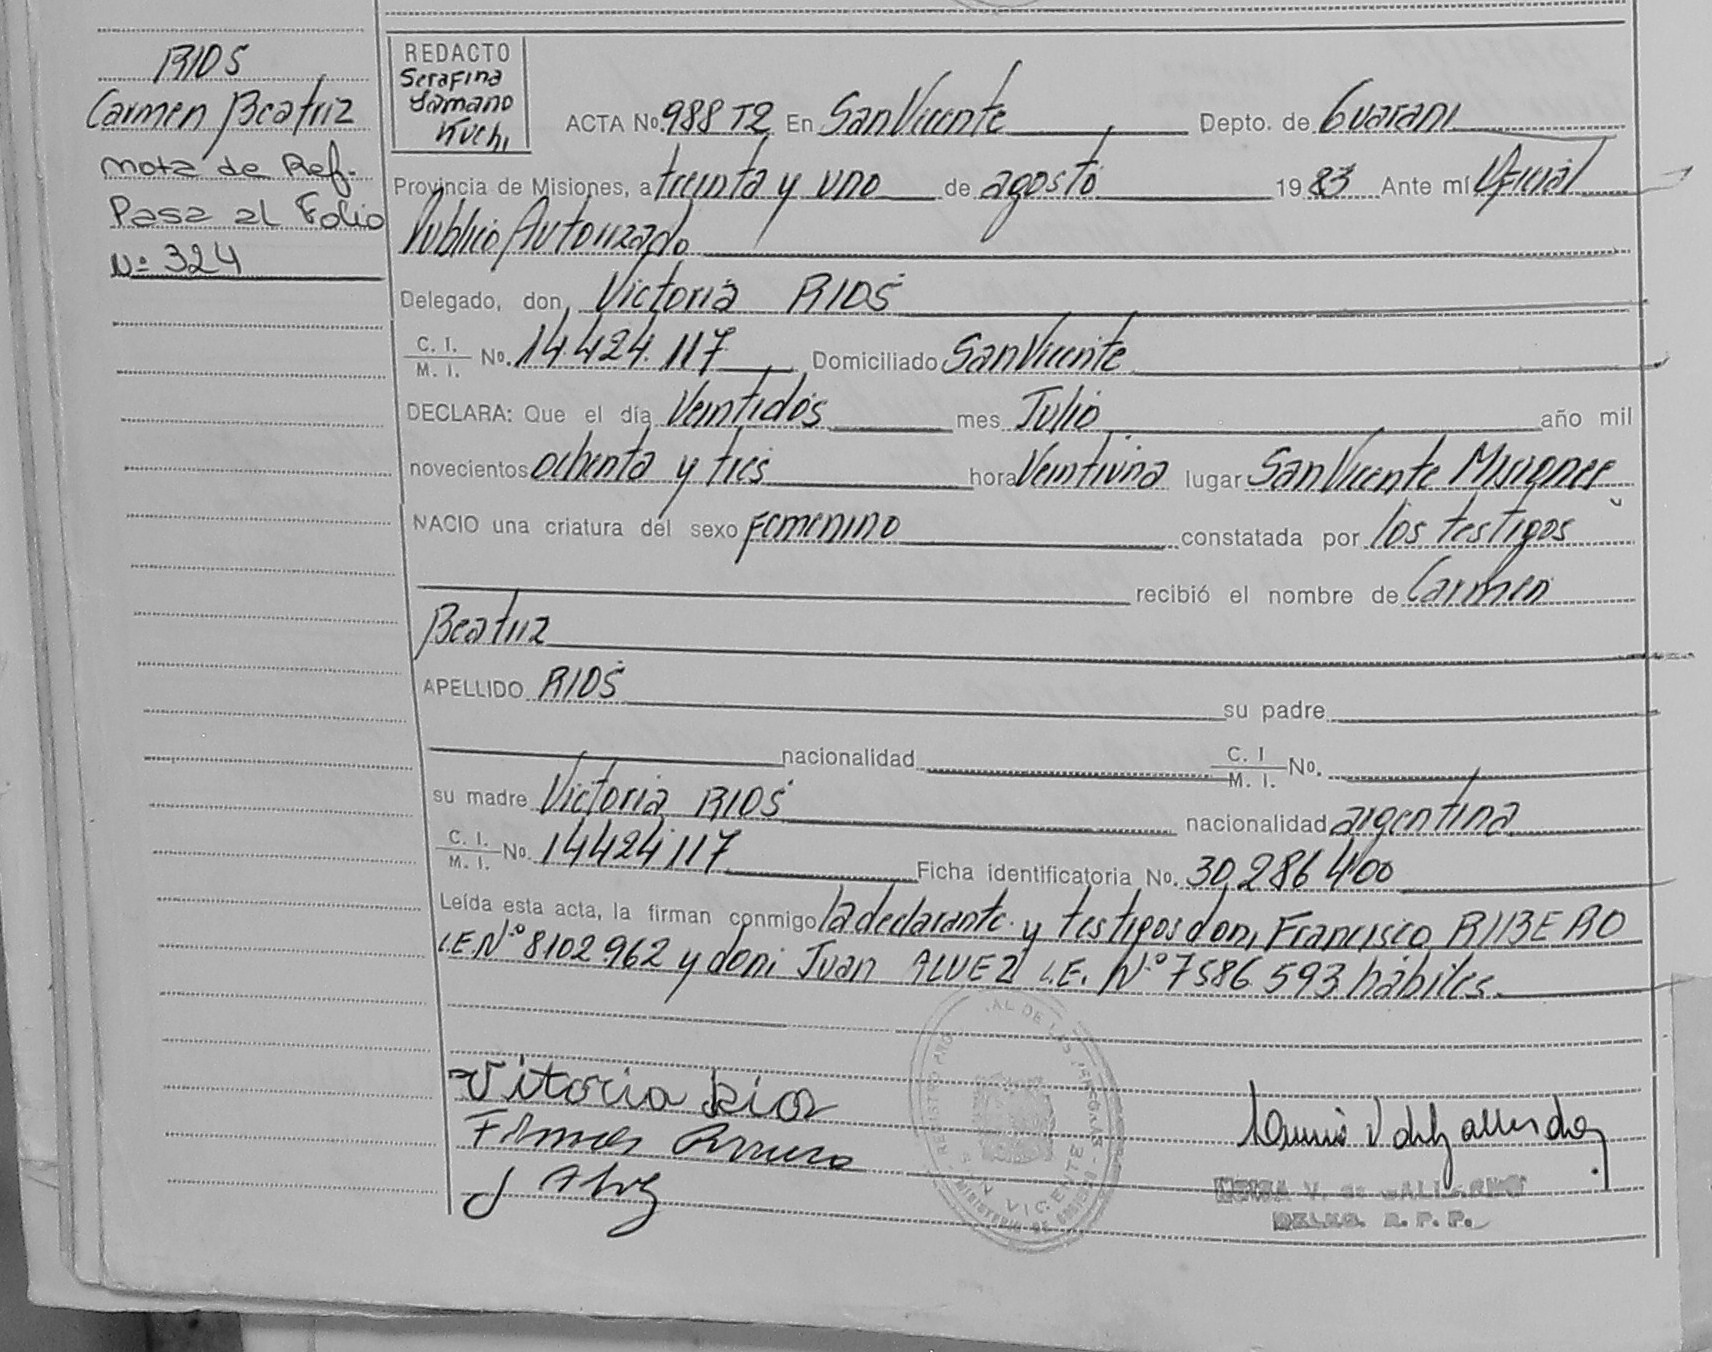 RIOS
Carmen Beatriz
nota de Ref.
Pasa al Folio
Nº 324
REDACTO
Serafina
Samano
Kuchi
ACTA No. 988 T2 En San Vicente Depto. de Guarani
Provincia de Misiones, a treinta y uno de agosto 1983 Ante mí Oficial
Publico Autorizado
Delegado, don Victoria RIOS
C. I. / M. I. No. 14.424.117 Domiciliado San Vicente
DECLARA: Que el día Veintidos mes Julio año mil
novecientos ochenta y tres hora Veintiuna lugar San Vicente Misiones
NACIO una criatura del sexo Femenino constatada por los testigos
recibió el nombre de Carmen
Beatriz
APELLIDO RIOS su padre
nacionalidad C. I / M. I. No.
su madre Victoria RIOS nacionalidad argentina
C. I. / M. I. No. 14424117 Ficha identificatoria No. 30,286400
Leída esta acta, la firman conmigo la declarante y testigos don, Francisco RIBERO
L.E Nº 8102962 y don: Juan ALVEZ L.E. Nº 7586.593 hábiles.
Vitoria Rios
J Alvez
SAN VICENTE
V. de
DELEG. R. P. P.